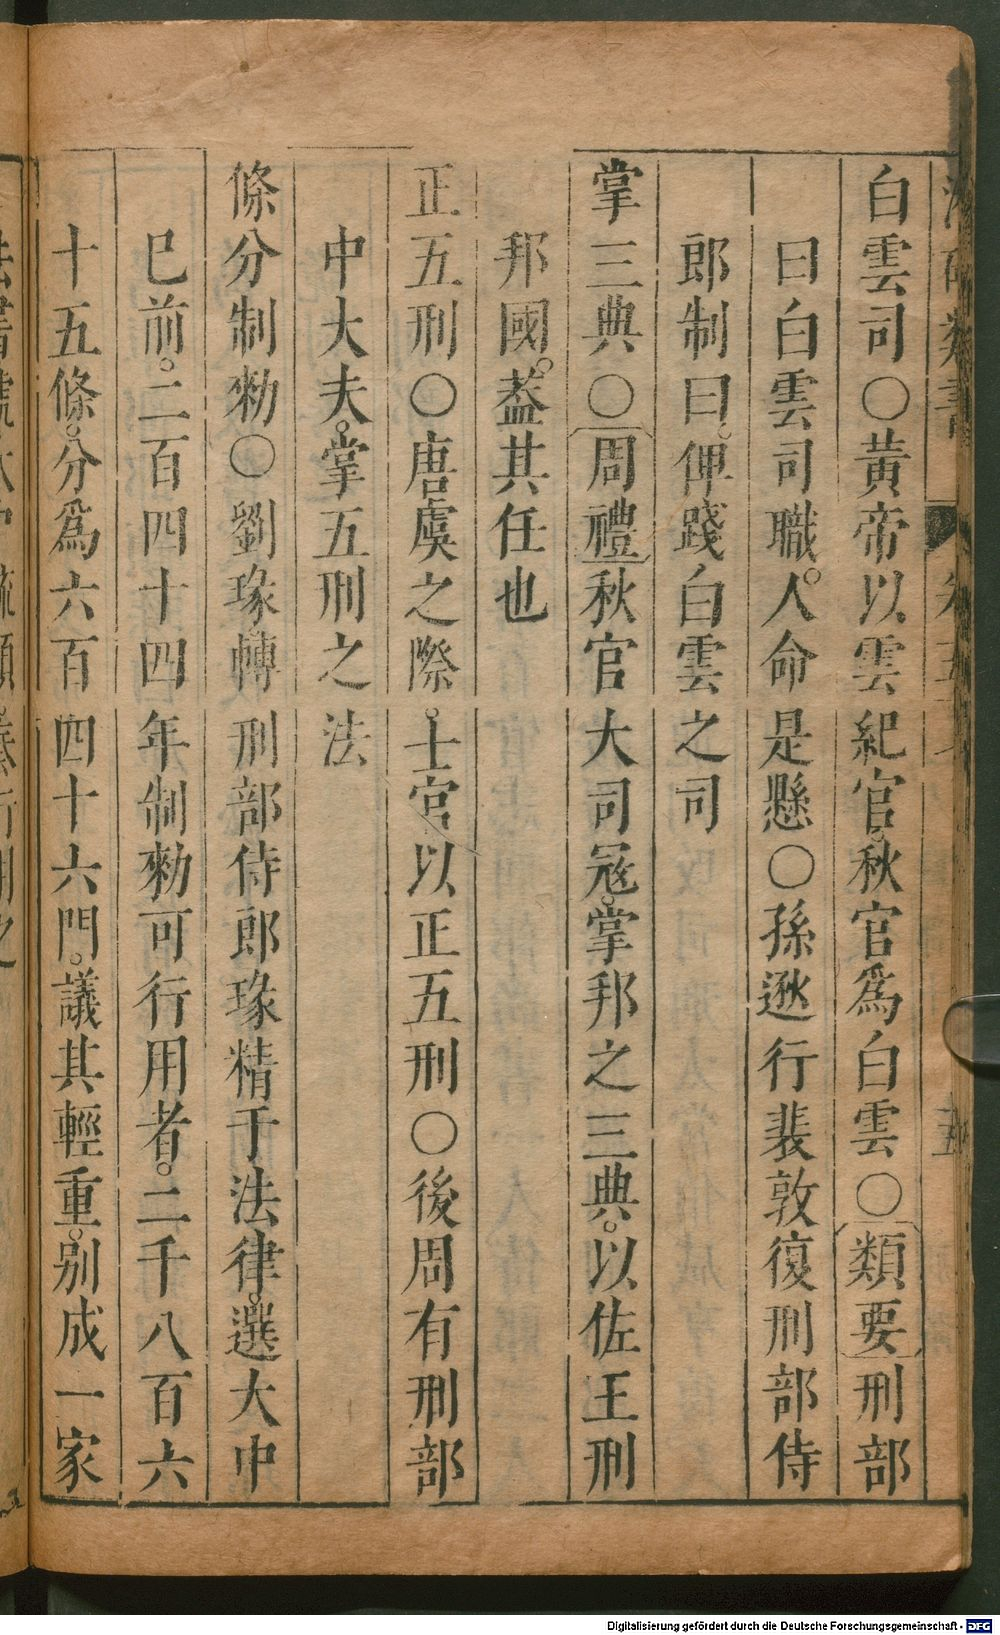 白雲司○黃帝以雲紀官。秋官爲白雲○類要刑部
曰白雲司職。人命是懸○孫逖行裴敦復刑部侍
郎制曰。俾踐白雲之司
掌三典○周禮秋官大司冦。掌邦之三典。以佐王刑
邦國。葢其任也
正五刑○唐虞之際。士官以正五刑○後周有刑部
中大夫。掌五刑之法
條分制勑○劉瑑轉刑部侍郎瑑精于法律。選大中
巳前。二百四十四年制勑可行用者。二千八百六
十五條。分爲六百四十六門。議其輕重。别成一家
Digitalisierung gefördert durch die Deutsche Forschungsgemeinschaft - DFG